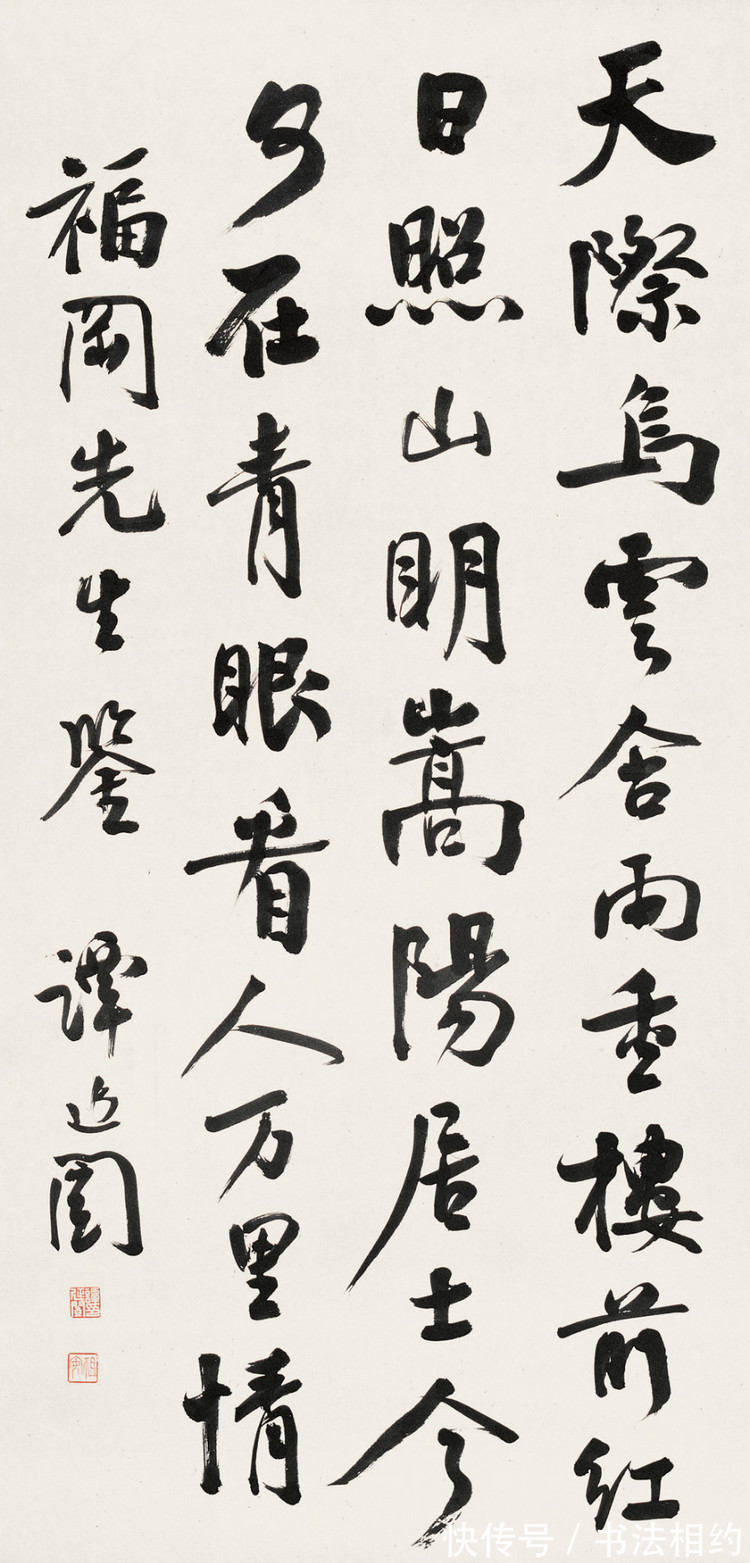 天際烏雲含雨重樓前紅
日照山明嵩陽居士今
何在青眼看人万里情
福岡先生鑒 譚延闓
快传号 / 书法相约